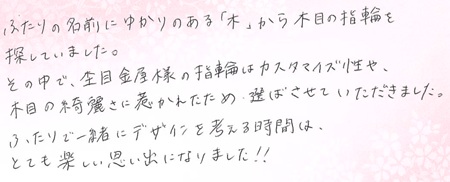 ふたりの名前にゆかりのある「木」から木目の指輪を
探していました。
その中で、杢目金屋様の指輪はカスタマイズ性や、
木目の綺麗さに惹かれたため選ばさせていただきました。
ふたりで一緒にデザインを考える時間は、
とても楽しい思い出になりました!!